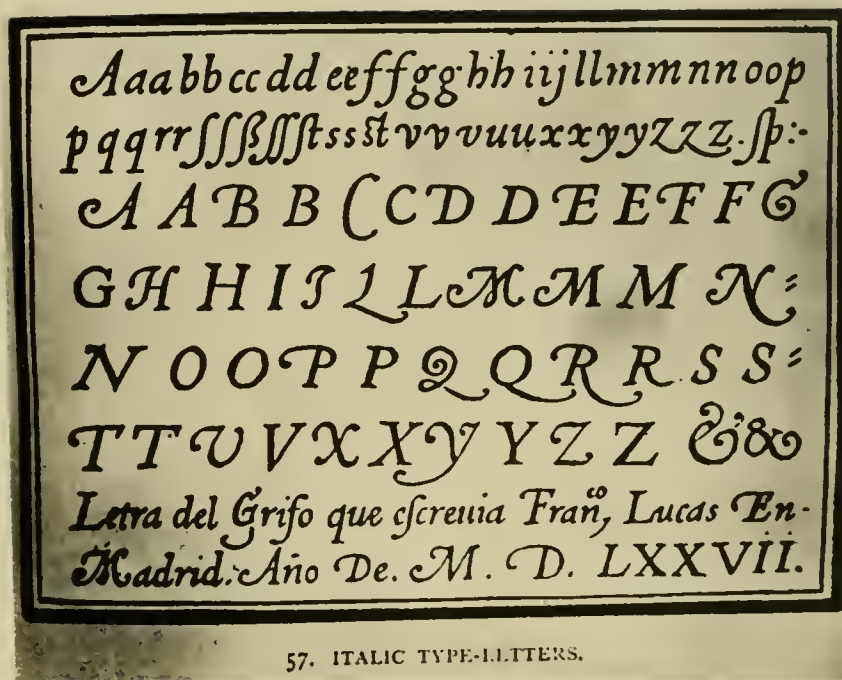 Aaabbccddeeffgghhiijllmmnnoop
pqqrrſſſßſſſtssstvvvuuxxyyzzz.ſp:-
A A B B C C D D E E F F G
G H H I J L L M M M N:
N O O P P Q Q R R. S S:
T T V V X X Y Y Z Z & &
Letra del Grifo que eſcreuia Franͦ, Lucas En-
Madrid. Año De. M. D. LXXVII.
57. ITALIC TYPE-LETTERS.